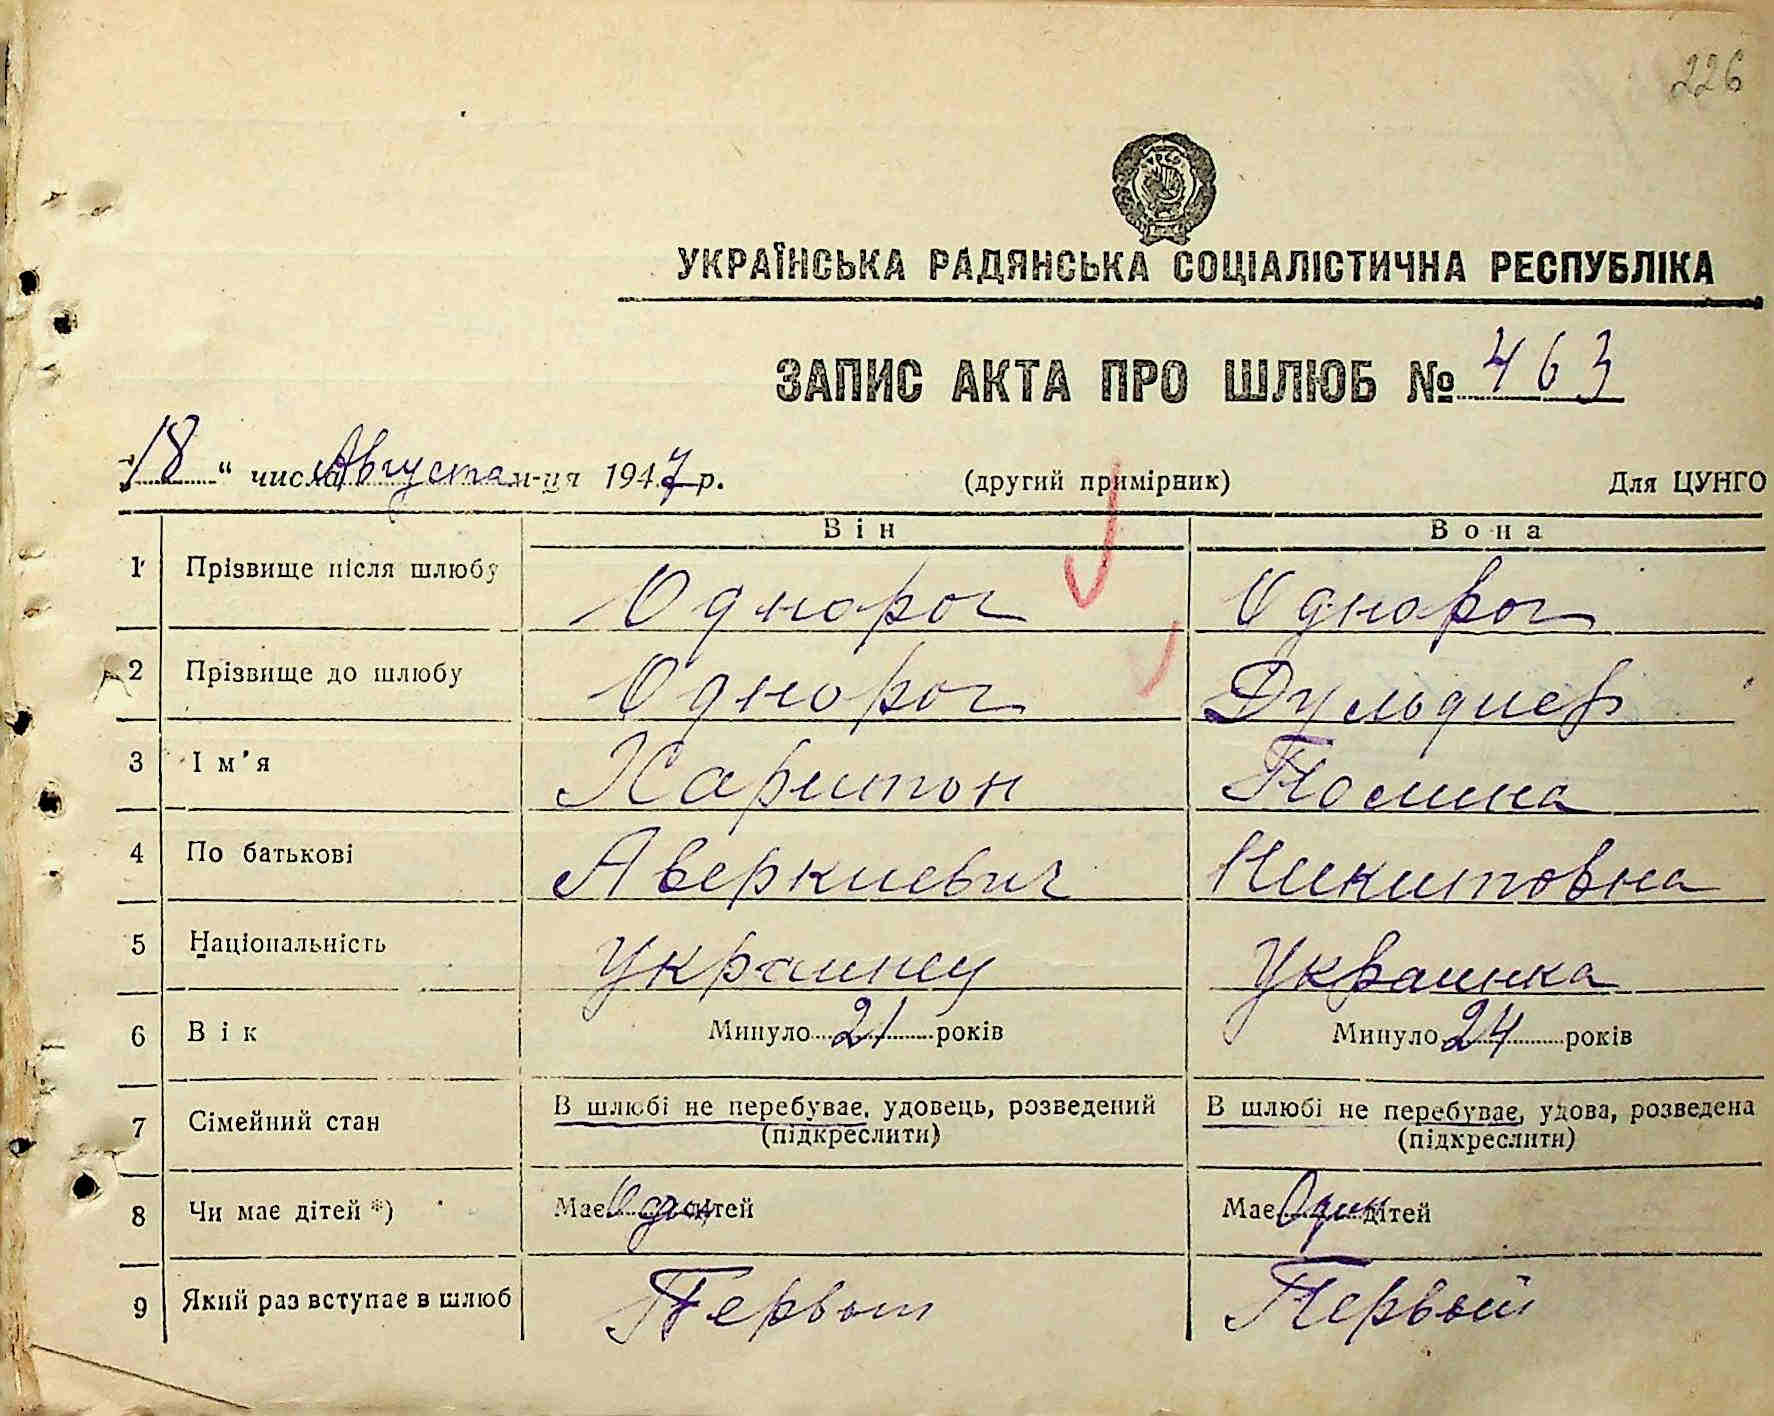 226
УКРАЇНСЬКА РАДЯНСЬКА СОЦІАЛІСТИЧНА РЕСПУБЛІКА
ЗАПИС АКТА ПРО ШЛЮБ № 463
"18" числа Августа м-ця 1947 р. (другий примірник) Для ЦУНГО
Він Вона
1 Прізвище після шлюбу Однорог Однорог
2 Прізвище до шлюбу Однорог
3 Ім'я Харитон Полина
4 По батькові Аверкиевич Никитовна
5 Національність Украинец Украинка
6 Вік Минуло 21 років Минуло 24 років
7 Сімейний стан В шлюбі не перебуває, удовець, розведений (підкреслити) В шлюбі не перебуває, удова, розведена (підкреслити)
8 Чи має дітей *) Має Один дітей Має Один дітей
9 Який раз вступає в шлюб Первый Первый